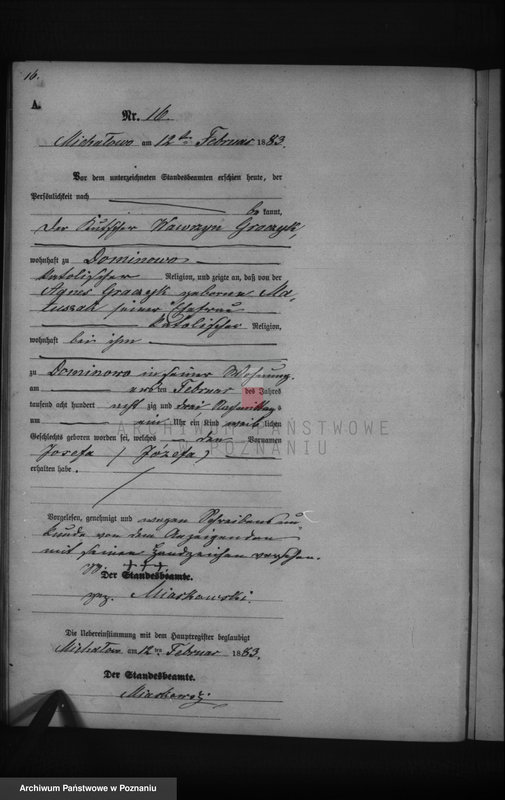 16.
A.
Nr. 16.
Michałowo am 12ten Februar 1883.
Vor dem unterzeichneten Standesbeamten erschien heute, der
Persönlichkeit nach
be kannt,
der Kutscher Wawrzyn Graczyk,
wohnhaft zu Dominowo
katolischer Religion, und zeigte an, daß von der
Agnes Graczyk geborene Ma-
tuszak seiner Ehefrau
katolischer Religion,
wohnhaft bei ihm
zu Dominowo in seiner Wohnung.
am ersten Februar des Jahres
tausend acht hundert acht zig und drei Nachmittags
um ein Uhr ein Kind weib lichen
Geschlechts geboren worden sei, welches den Vornamen
Josefa (Józefa)
erhalten habe.
Vorgelesen, genehmigt und wegen Schreibens un-
kunde von dem Anzeigenden
mit seinem Handzeichen versehen.
+++
Der Standesbeamte.
gez. Miaskowski.
Die Uebereinstimmung mit dem Hauptregister beglaubigt
Michałowo am 12ten Februar 1883.
Der Standesbeamte.
Miaskowski
ARCHIWUM PAŃSTWOWE
W POZNANIU
Archiwum Państwowe w Poznaniu